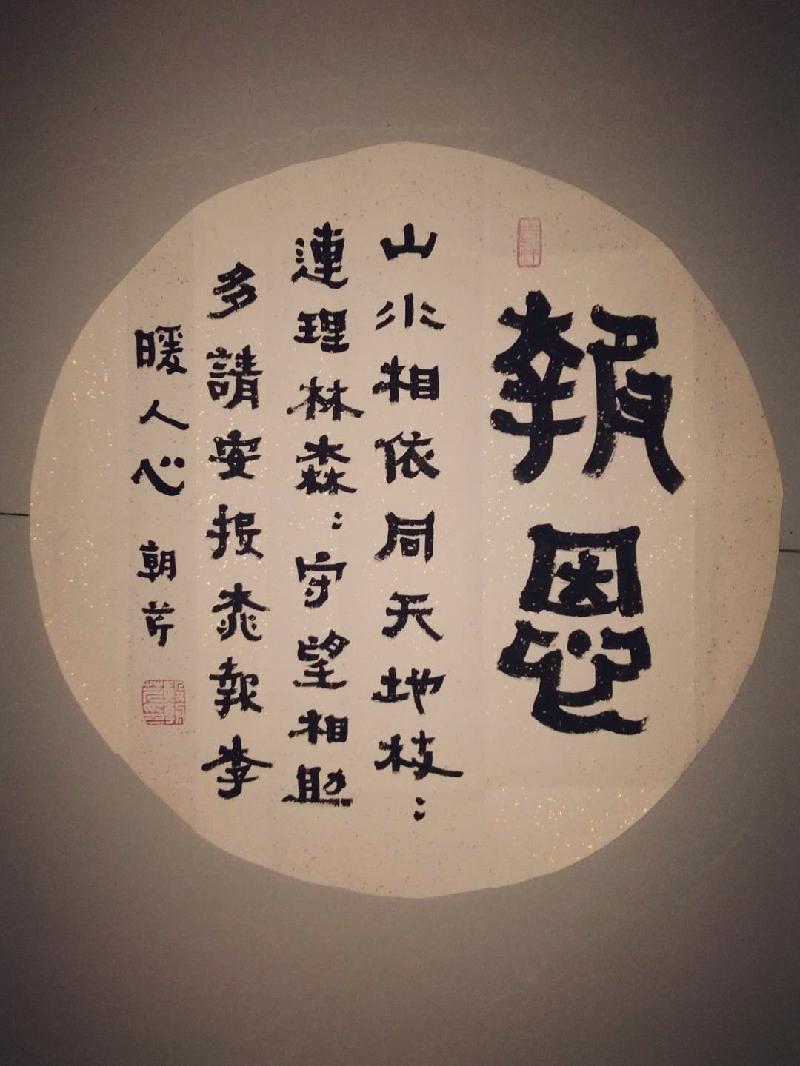 報恩
山水相依同天地枝：
連理林森：守望相助
多請安投桃報李
暖人心 朝芹